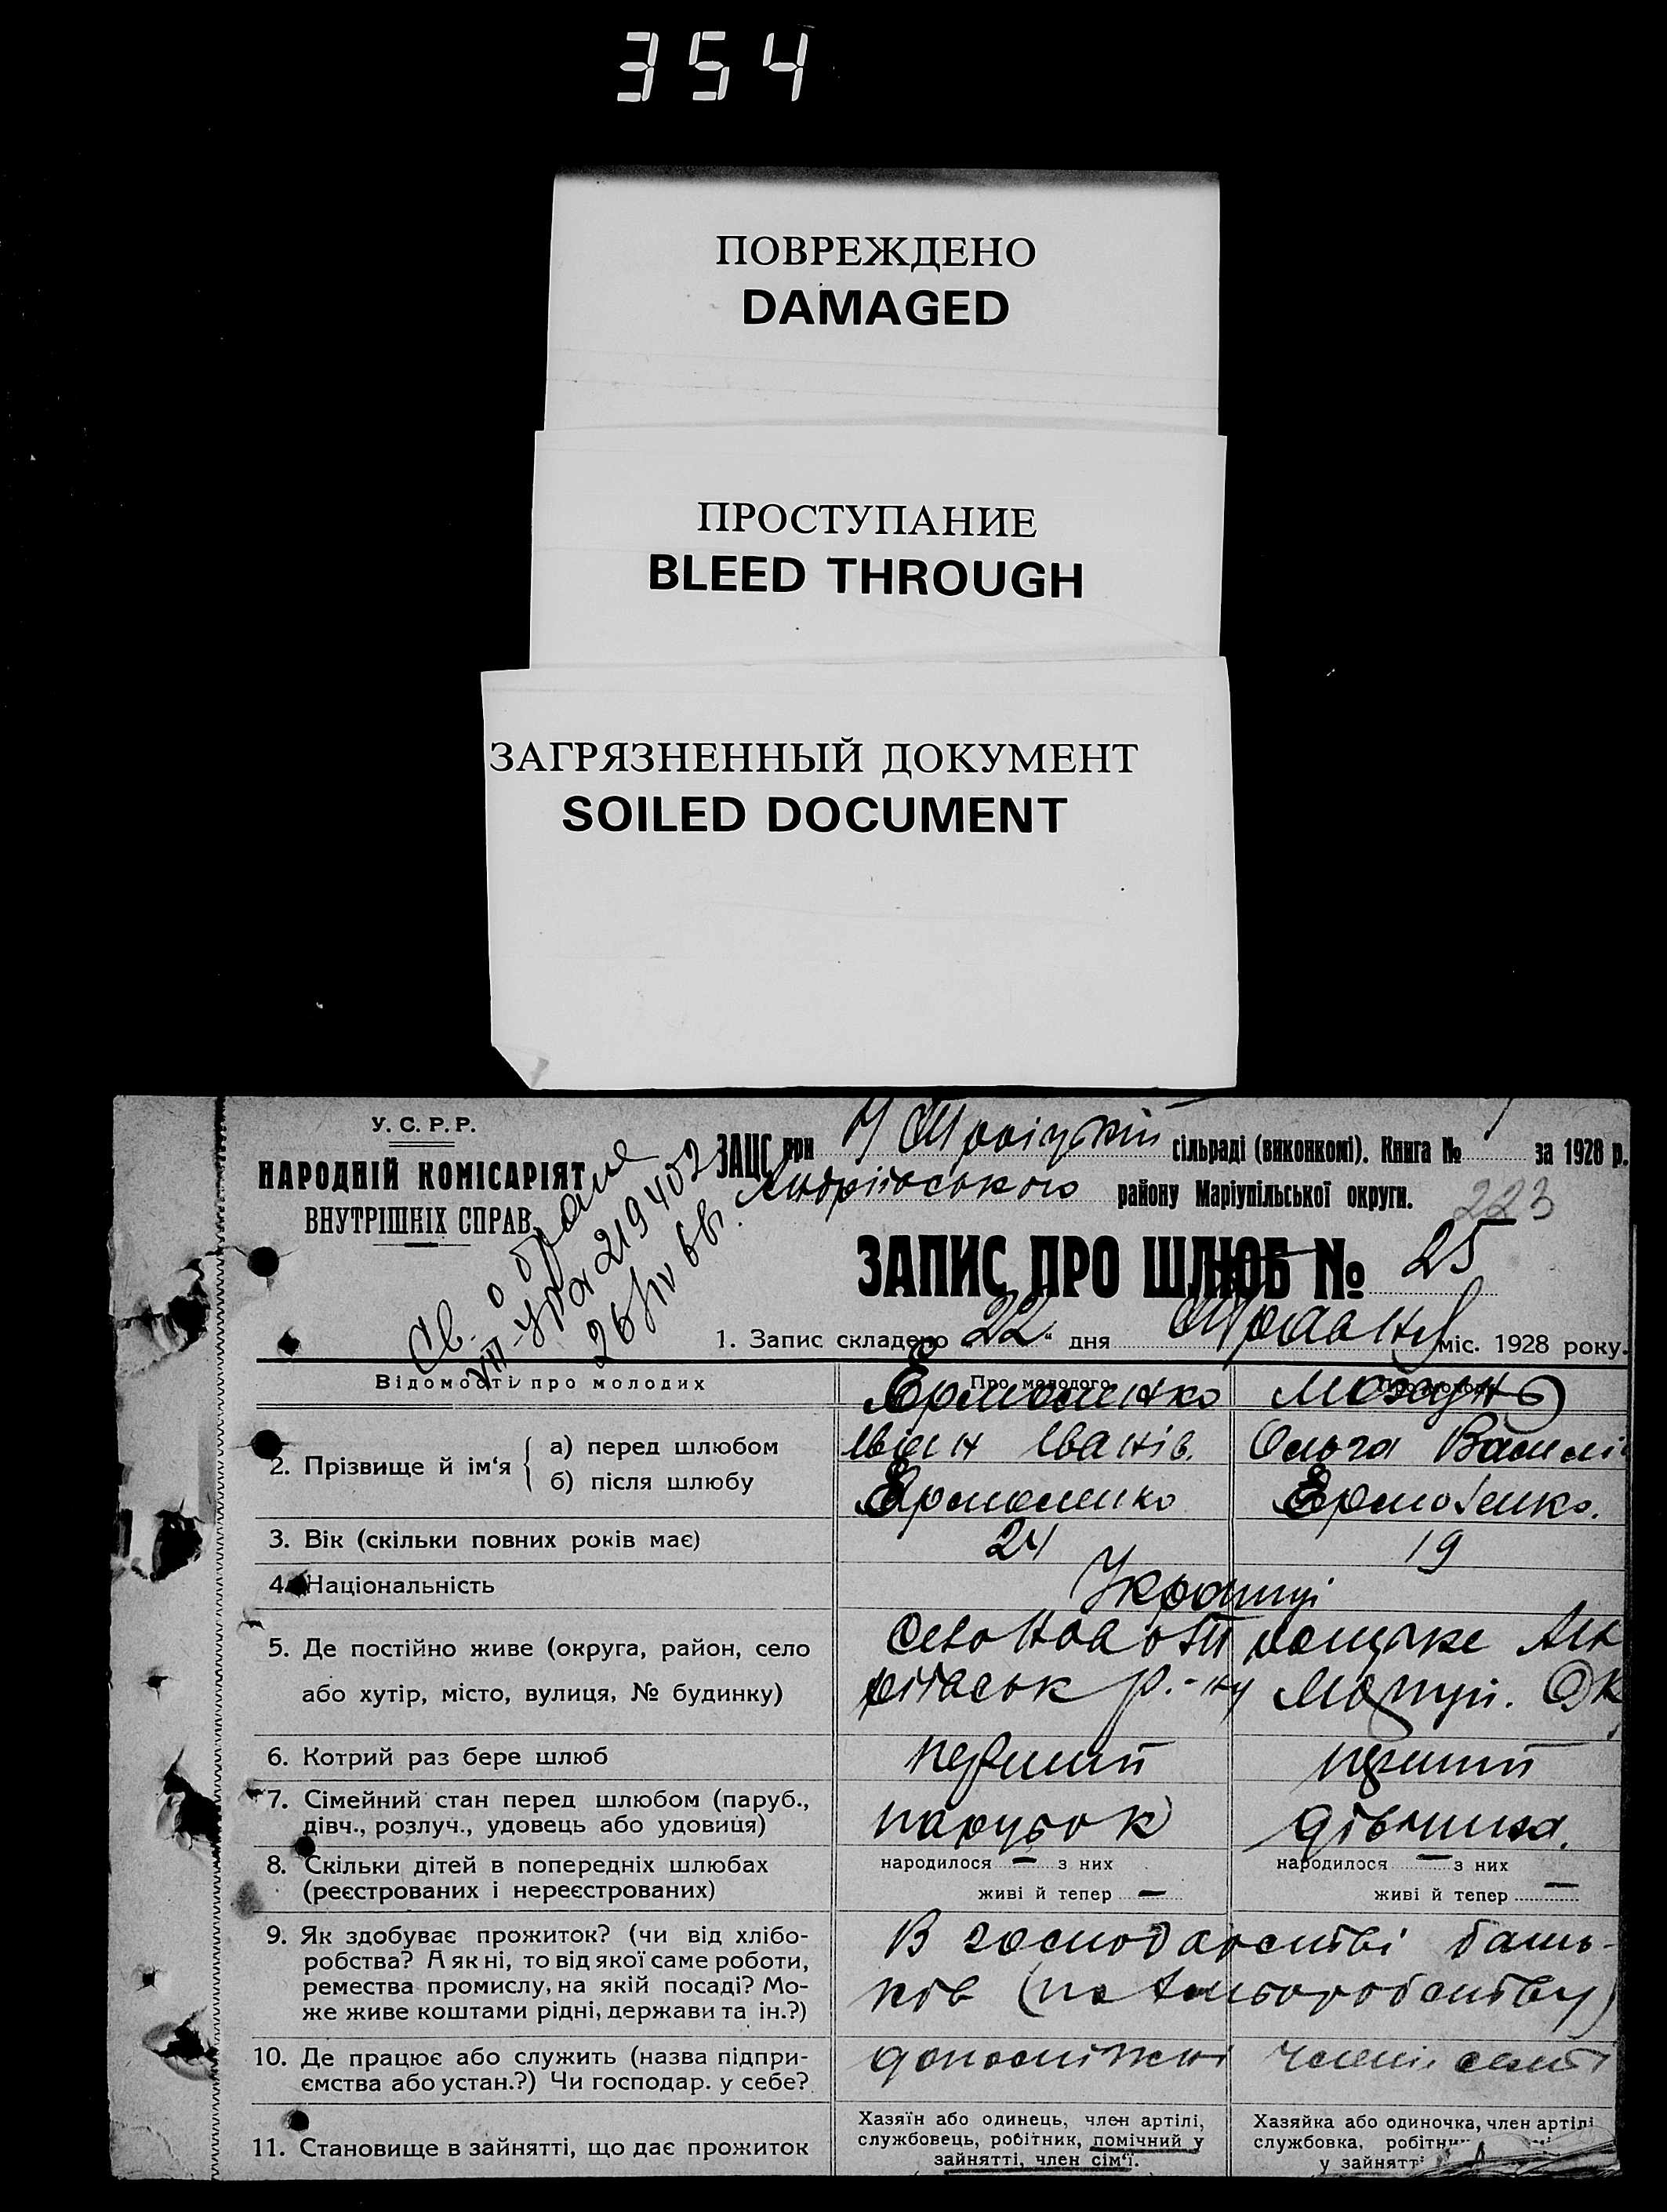 354
ПОВРЕЖДЕНО
DAMAGED
ПРОСТУПАНИЕ
BLEED THROUGH
ЗАГРЯЗНЕННЫЙ ДОКУМЕНТ
SOILED DOCUMENT
У. С. Р. Р.
НАРОДНІЙ КОМІСАРІЯТ
ВНУТРІШНІХ СПРАВ
ЗАЦС при Н Троіцкій сільраді (виконкомі). Книга № за 1928 р.
Андріївського району Маріупільської округи.
223
Св. о браке
VII-УРА 219402
ЗАПИС ПРО ШЛЮБ № 25
1. Запис складено „22“ дня Травня міс. 1928 року.
Відомості про молодих
Про молодого
Єрмоленко
2. Прізвище й ім'я
а) перед шлюбом
б) після шлюбу
Іван Іванів.
Ольга Василі
Єрмоленко
Єрмоленко.
3. Вік (скільки повних років має) 24 19
4. Національність Українці
5. Де постійно живе (округа, район, село
або хутір, місто, вулиця, № будинку)
Село Ново Троіцьке Анд
ріївськ р.-ну Маріуп. Ок
6. Котрий раз бере шлюб перший перший
7. Сімейний стан перед шлюбом (паруб.,
дівч., розлуч., удовець або удовиця)
парубок дівчина.
8. Скільки дітей в попередніх шлюбах
(реєстрованих і нереєстрованих)
народилося — з них
живі й тепер —
народилося — з них
живі й тепер —
9. Як здобуває прожиток? (чи від хлібо-
робства? А як ні, то від якої саме роботи,
ремества промислу, на якій посаді? Мо-
же живе коштами рідні, держави та ін.?)
В господарстві бать-
ків (по хліборобству)
10. Де працює або служить (назва підпри-
ємства або устан.?) Чи господар. у себе?
допоміжні члени семї
11. Становище в зайнятті, що дає прожиток
Хазяїн або одинець, член артілі,
службовець, робітник, помічний у
зайнятті, член сім'ї.
Хазяйка або одиночка, член артілі
службовка,
у зайнятт